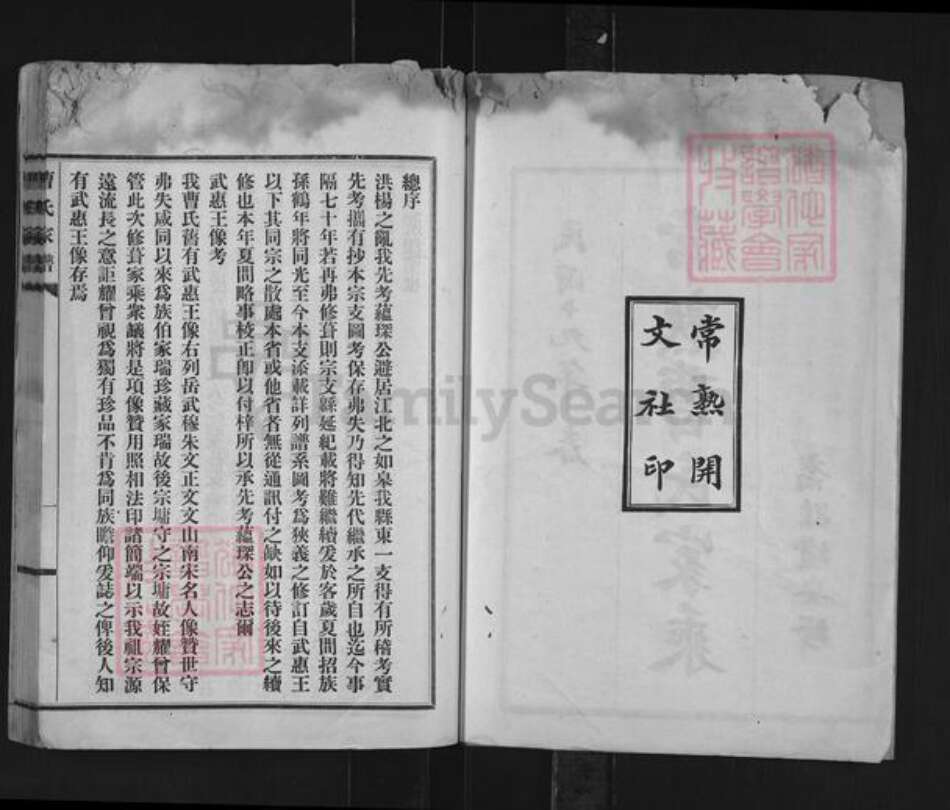 常熟開
文社印
總序
洪楊之亂我先考蘊琛公避居江北之如皋我縣東一支得有所稽考實
先考攜有抄本宗支圖考保存弗失乃得知先代繼承之所自也迄今事
隔七十年若再弗修葺則宗支縣延紀載將難繼續爰於客歲夏間招族
孫鶴年將同光至今本支添載詳列譜系圖考爲狹義之修訂自武惠王
以下其同宗之散處本省或他省者無從通訊付之缺如以待後來之續
修也本年夏間略事校正卽以付梓所以承先考蘊琛公之志爾
武惠王像考
我曹氏舊有武惠王像右列岳武穆朱文正文文山南宋名人像贊世守
弗失咸同以來爲族伯家瑞珍藏家瑞故後宗墉守之宗墉故姪耀曾保
管此次修葺家乘衆議將是項像贊用照相法印諸簡端以示我祖宗源
遠流長之意詎耀曾視爲獨有珍品不肯爲同族瞻仰爰誌之俾後人知
有武惠王像存焉
曹氏家譜
FamilySearch